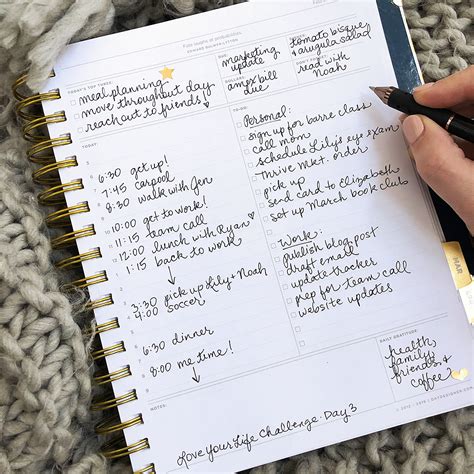 TODAY'S TOP THREE
meal planning
move throughout day
reach out to friends!
DUE
marketing
update
DOLLARS
amex bill
due
tomato bisque
& arugula salad
read with
Noah
TODAY
6:30 get up!
7:45 carpool
8:30 walk with Jen
10:00 get to work!
11:15 team call
12:00 lunch with Ryan
1:15 back to work
3:30 pick up Lily & Noah
4:00 Soccer!
6:30 dinner
8:00 me time!
TO-DO
Personal:
sign up for barre class
call mom
schedule Lily's eye exam
Thrive Mkt. order
pick up
send card to Elizabeth
set up March book club
Work:
publish blog post
draft email
update tracker
prep for team call
website updates
DAILY GRATITUDE
health,
family,
friends, &
coffee
NOTES
Love Your Life Challenge: Day 3
MAR